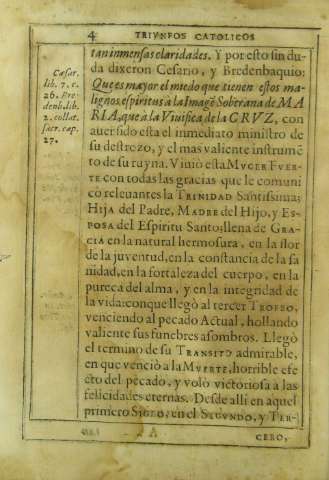 4 TRIVNFOS CATOLICOS
tan inmensas claridades. Y por esto sin du-
da dixeron Cesario, y Bredenbaquio:
Que es mayor el miedo que tienen estos ma-
lignos espiritus à la Imagẽ Soberana de MA
RIA, que à la Viuifica de la CRVZ, con
auer sido esta el inmediato ministro de
su destrozo, y el mas valiente instrumẽ
to de su ruyna. Viuiò esta MVGER FVER
TE con todas las gracias que le comuni
co releuantes la TRINIDAD Santissima;
Hija del Padre, MADRE del Hijo, y ES-
POSA del Espiritu Santo; llena de GRA-
CIA en la natural hermosura, en la flor
de la juventud, en la constancia de la sa
nidad, en la fortaleza del cuerpo, en la
pureça del alma, y en la integridad de
la vida: conque llegò al tercer TROFEO,
venciendo al pecado Actual, hollando
valiente sus funebres asombros. Llegò
el termino de su TRANSITO admirable,
en que venciò a la MVERTE, horrible efe
cto del pecado, y volò victoriosa a las
felicidades eternas. Desde alli en aquel
primero SIGLO, en el SEGVNDO, y TER-
CERO,
Cæsar.
lib. 7. c.
26. Bre-
denb. lib.
2. collat.
sacr. cap.
27.